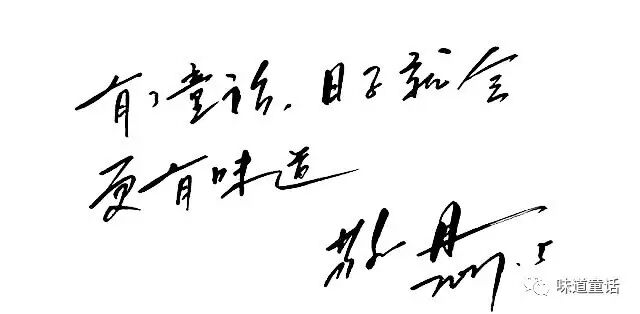 有了童话，日子就会
更有味道
敬丹
2017.5
味道童话